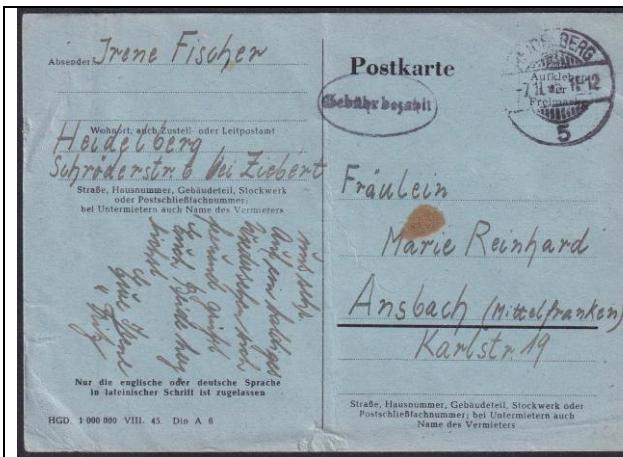 Absender: Irene Fischer
Wohnort, auch Zustell- oder Leitpostamt
Heidelberg
Schröderstr. 6 bei Ziebert
Straße, Hausnummer, Gebäudeteil, Stockwerk
oder Postschließfachnummer;
bei Untermietern auch Name des Vermieters
Auf ein baldiges
Wiedersehen
Eure Irene
Nur die englische oder deutsche Sprache
in lateinischer Schrift ist zugelassen
HGD. 1 000 000 VIII. 45. Din A 6
Postkarte
Gebühr bezahlt
HEIDELBERG
Aufkleben
der
Freimarke
5
Fräulein
Marie Reinhard
Ansbach (Mittelfranken)
Karlstr. 19
Straße, Hausnummer, Gebäudeteil, Stockwerk oder
Postschließfachnummer; bei Untermietern auch
Name des Vermieters